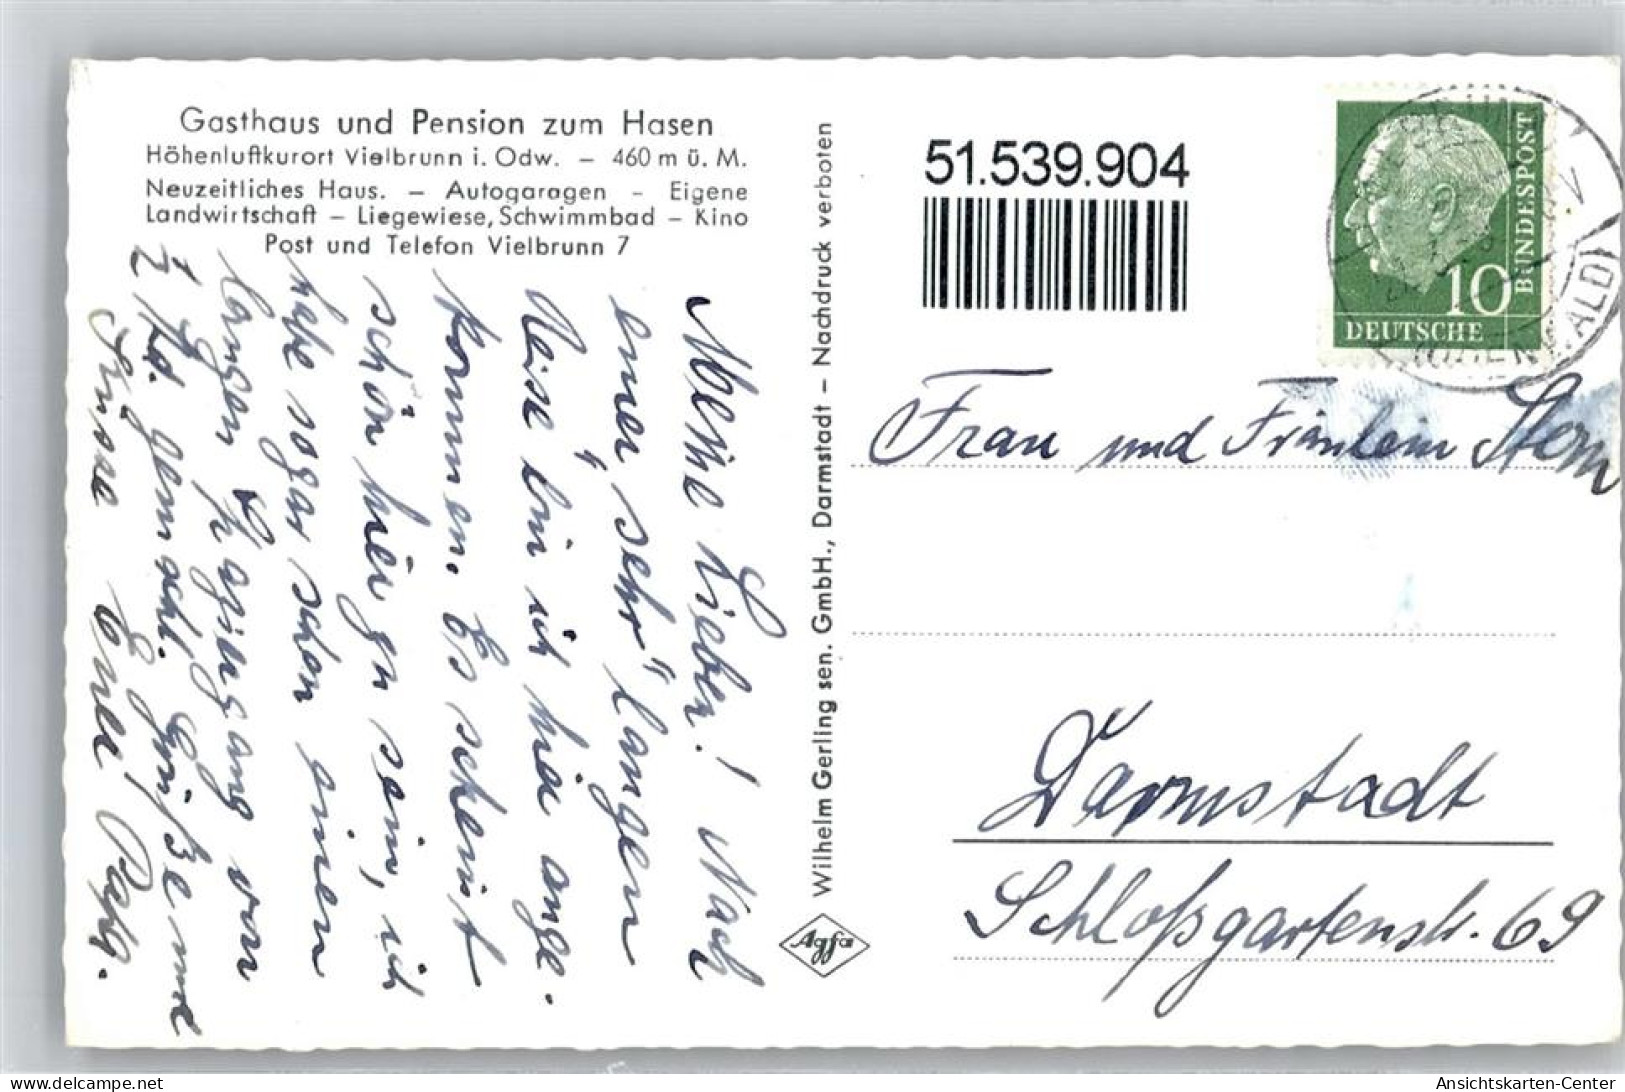 Gasthaus und Pension zum Hasen
Höhenluftkurort Vielbrunn i. Odw. – 460 m ü. M.
Neuzeitliches Haus. – Autogaragen – Eigene
Landwirtschaft – Liegewiese, Schwimmbad – Kino
Post und Telefon Vielbrunn 7
Meine Lieben! Nach
einer "sehr" langen
Reise bin ich hier ange-
kommen. Es scheint
schön hier zu sein, ich
habe sogar schon einen
langen Spaziergang von
2 Std. gemacht. Grüße und
Küsse Euer Papa.
Wilhelm Gerling sen. GmbH., Darmstadt – Nachdruck verboten
Agfa
51.539.904
DEUTSCHE
BUNDESPOST
10
(ODENWALD)
Frau und Fräulein Stern
Darmstadt
Schloßgartenstr. 69
Ansichtskarten-Center
www.delcampe.net